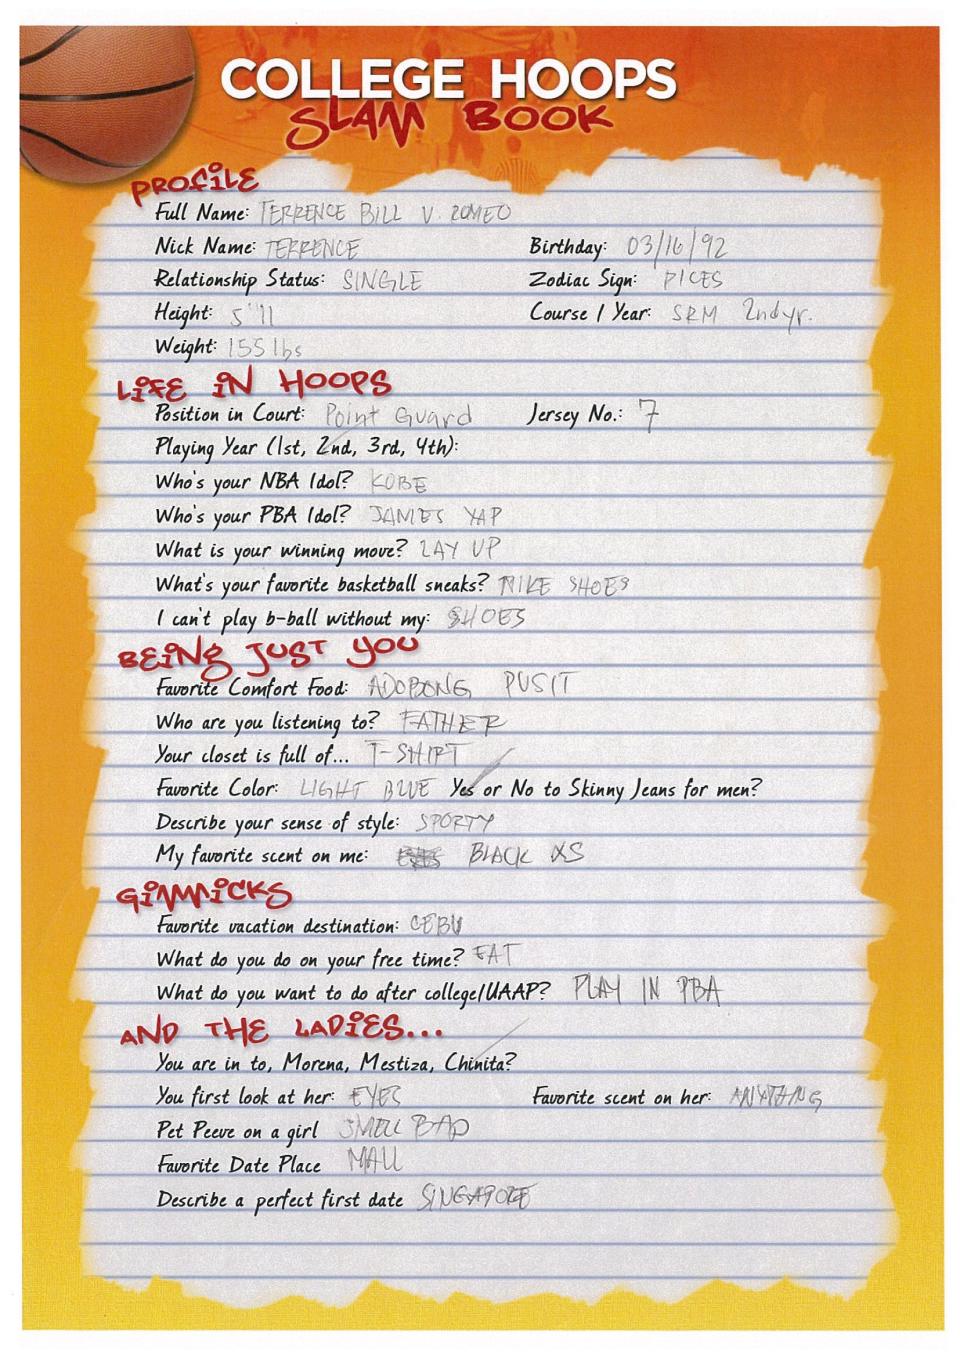 COLLEGE HOOPS
SLAM BOOK
PROFILE
Full Name: TERRENCE BILL V. ROMEO
Nick Name: TERRENCE Birthday: 03/16/92
Relationship Status: SINGLE Zodiac Sign: PICES
Height: 5'11 Course / Year: SRM 2nd yr.
Weight: 155 lbs
LIFE IN HOOPS
Position in Court: Point Guard Jersey No.: 7
Playing Year (1st, 2nd, 3rd, 4th):
Who's your NBA Idol? KOBE
Who's your PBA Idol? JAMES YAP
What is your winning move? LAY UP
What's your favorite basketball sneaks? NIKE SHOES
I can't play b-ball without my: SHOES
BEING JUST YOU
Favorite Comfort Food: ADOBONG PUSIT
Who are you listening to? FATHER
Your closet is full of... T-SHIRT
Favorite Color: LIGHT BLUE Yes or No to Skinny Jeans for men?
Describe your sense of style: SPORTY
My favorite scent on me: BLACK XS
GIMMICKS
Favorite vacation destination: CEBU
What do you do on your free time? EAT
What do you want to do after college/UAAP? PLAY IN PBA
AND THE LADIES...
You are in to, Morena, Mestiza, Chinita?
You first look at her: EYES Favorite scent on her: ANYTHING
Pet Peeve on a girl SMELL BAD
Favorite Date Place MALL
Describe a perfect first date SINGAPORE